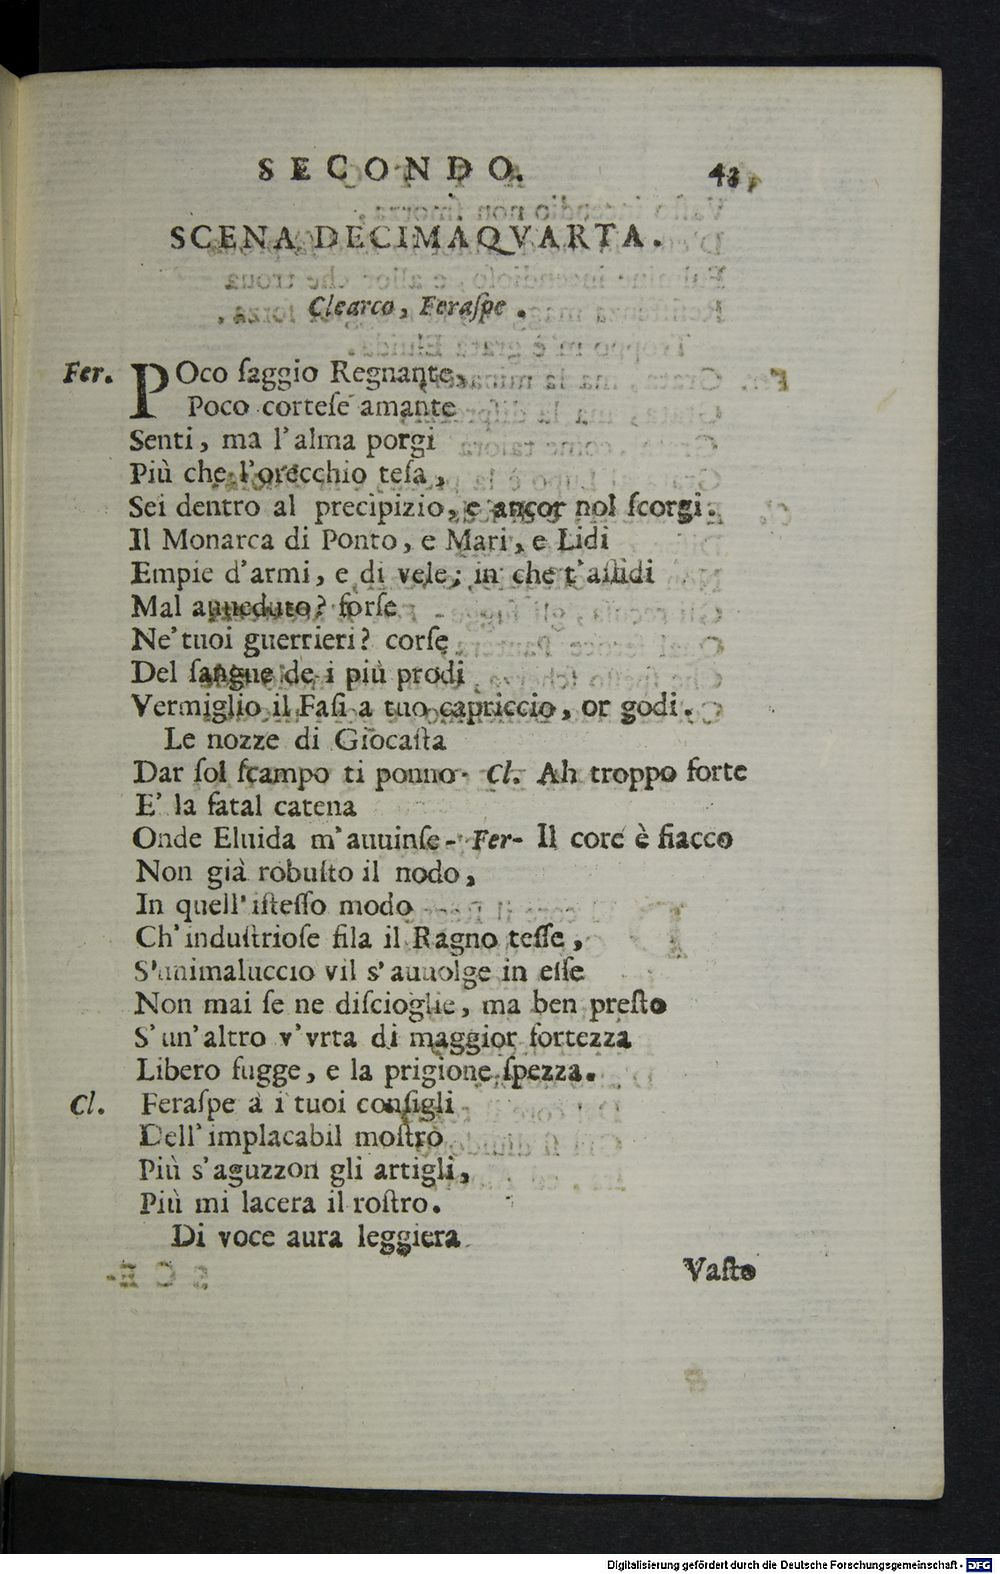 SECONDO. 43
SCENA DECIMAQVARTA.
Clearco, Feraſpe.
Fer. POco ſaggio Regnante,
Poco corteſe amante
Senti, ma l'alma porgi
Più che l'orecchio teſa,
Sei dentro al precipizio, e ancor nol ſcorgi.
Il Monarca di Ponto, e Mari, e Lidi
Empie d'armi, e di vele; in che t'aſſidi
Mal auueduto? forſe
Ne' tuoi guerrieri? corſe
Del ſangue de i più prodi
Vermiglio il Faſi a tuo capriccio, or godi.
Le nozze di Giocaſta
Dar ſol ſcampo ti ponno. Cl. Ah troppo forte
E' la fatal catena
Onde Eluida m'auuinſe. Fer. Il core è fiacco
Non già robuſto il nodo,
In quell'iſteſſo modo
Ch'induſtrioſe fila il Ragno teſſe,
S'animaluccio vil s'auuolge in eſſe
Non mai ſe ne diſcioglie, ma ben preſto
S'un'altro v'vrta di maggior fortezza
Libero fugge, e la prigione ſpezza.
Cl. Feraſpe à i tuoi conſigli
Dell'implacabil moſtro
Più s'aguzzon gli artigli,
Più mi lacera il roſtro.
Di voce aura leggiera
Vaſto
Digitalisierung gefördert durch die Deutsche Forschungsgemeinschaft - DFG